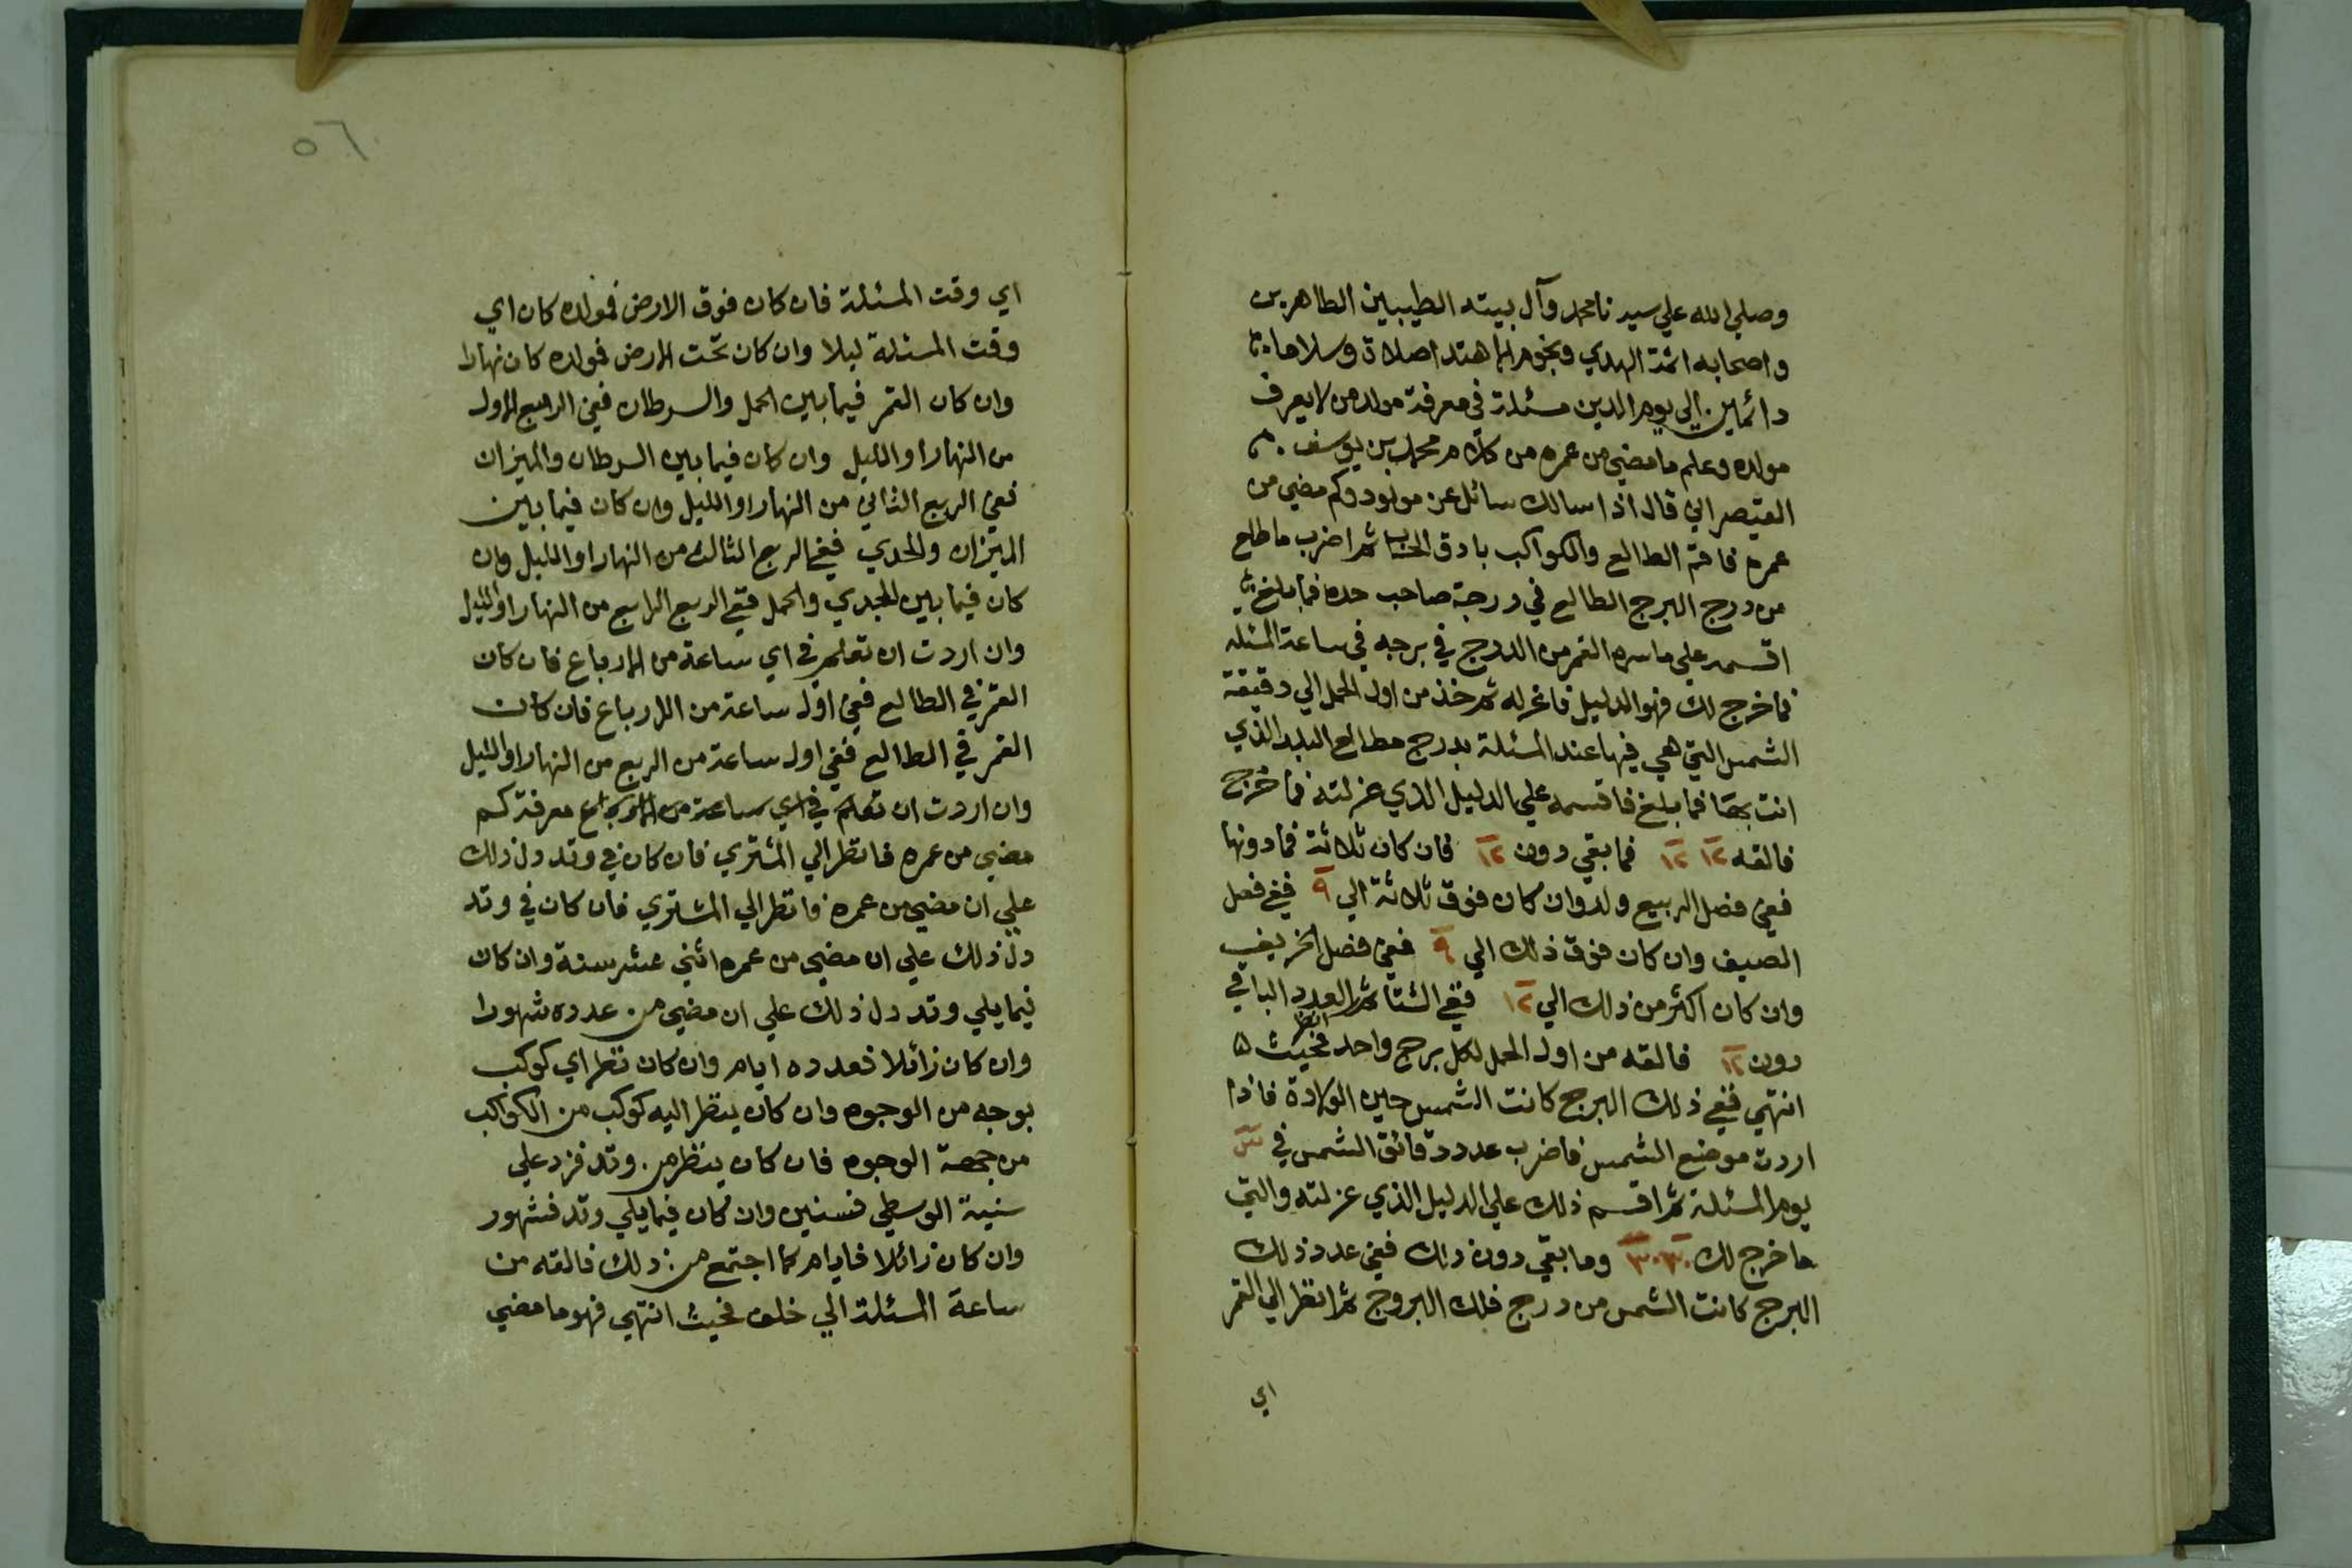 وصلي الله علي سيدنا محمد وآل بيته الطيبين الطاهرين
واصحابه ائمة الهدي ونجوم الاهتدا صلاة وسلاما
دائمين الي يوم الدين مسئلة في معرفة مولد من لا يعرف
مولده وعلم ما مضي من عمره من كلام محمد بن يوسف
القيصراني قال اذا سالك سائل عن مولود وكم مضي من
عمره فاقم الطالع والكواكب بادق الحساب ثم اضرب ما طلع
من درج البرج الطالع في درجة صاحب حده فما بلغ
اقسمه علي ما سره القمر من الدرج في برجه في ساعة المسئلة
فما خرج لك فهو الدليل فاعزله ثم خذ من اول الحمل الي دقيقة
الشمس التي هي فيها عند المسئلة بدرج مطالع البلد الذي
انت بها فما بلغ فاقسمه علي الدليل الذي عزلته فما خرج
فالقه ١٢ ١٢ فما بقي دون ١٢ فان كان ثلاثة فما دونها
ففي فصل الربيع ولد وان كان فوق ثلاثة الي ٩ ففي فصل
الصيف وان كان فوق ذلك الي ٩ ففي فصل الخريف
وان كان اكثر من ذلك الي ١٢ ففي الشتا ثم العدد الباقي
دون ١٢ فالقه من اول الحمل لكل برج واحد فحيث
انتهي ففي ذلك البرج كانت الشمس حين الولادة فاذا
اردت موضع الشمس فاضرب عدد دقائق الشمس في
يوم المسئلة ثم اقسم ذلك علي الدليل الذي عزلته والتي
ما خرج لك ٣٠ ٣٠ وما بقي دون ذلك ففي عدد ذلك
البرج كانت الشمس من درج فلك البروج ثم انظر الي القمر
اي
٥٦
اي وقت المسئلة فان كان فوق الارض فمولده كان اي
وقت المسئلة ليلا وان كان تحت الارض فمولده كان نهارا
وان كان القمر فيما بين الحمل والسرطان ففي الربيع الاول
من النهار او الليل وان كان فيما بين السرطان والميزان
ففي الربع الثاني من النهار او الليل وان كان فيما بين
الميزان والجدي ففي الربع الثالث من النهار او الليل وان
كان فيما بين الجدي والحمل ففي الربع الرابع من النهار او الليل
وان اردت ان تعلم في اي ساعة من الارباع فان كان
القمر في الطالع ففي اول ساعة من الارباع فان كانت
القمر في الطالع ففي اول ساعة من الربع من النهار او الليل
وان اردت ان تعلم في اي ساعة من الارباع معرفة كم
مضي من عمره فانظر الي المشتري فان كان في وتد دل ذلك
علي ان مضي من عمره فانظر الي المشتري فان كان في وتد
دل ذلك علي ان مضي من عمره اثني عشر سنة وان كان
فيما يلي وتد دل ذلك علي ان مضي من عدده شهورا
وان كان زائلا فعدده ايام وان كان نظر اي كوكب
بوجه من الوجوه وان كان ينظر اليه كوكب من الكواكب
من جهة الوجوه فان كان ينظر من وتد فزد علي
سنية الوسطي فسنين وان كان فيما يلي وتد فشهور
وان كان زائلا فايام كما اجتمع من ذلك فالقه من
ساعة المسئلة الي خلف فحيث انتهي فهو ما مضي